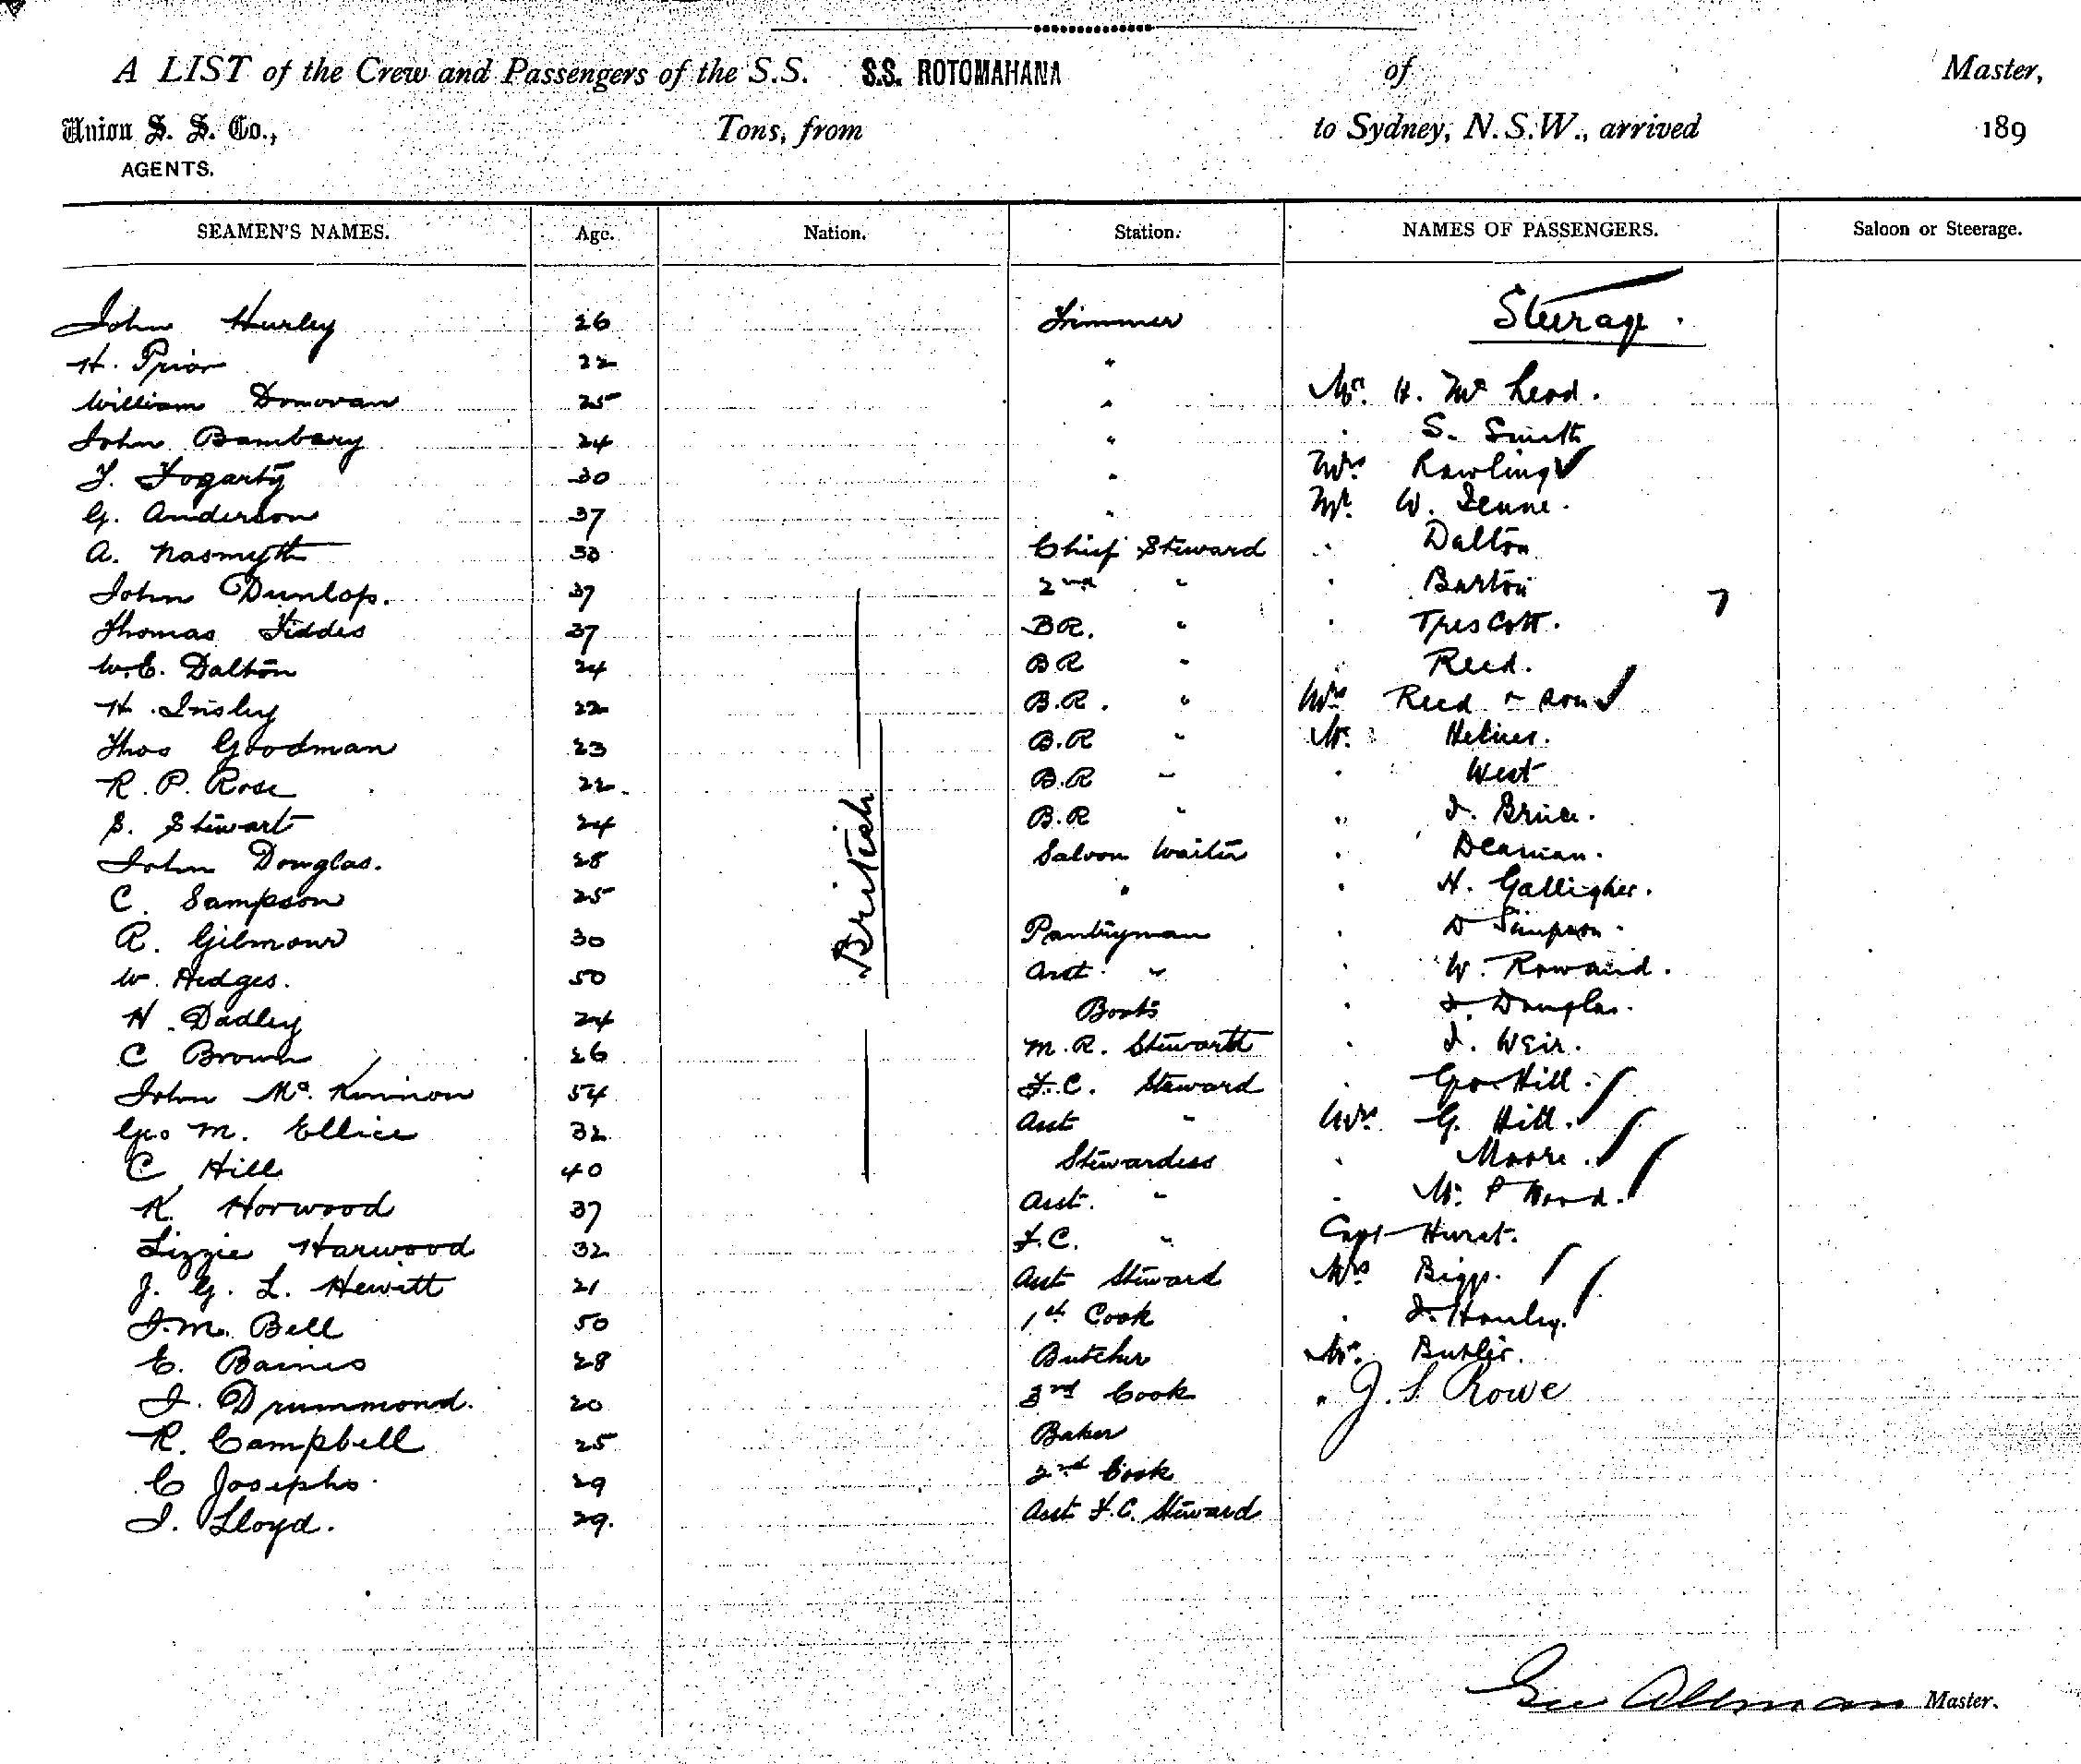 A LIST of the Crew and Passengers of the S.S. S.S. ROTOMAHANA of Master,
Union S. S. Co., Tons, from to Sydney, N.S.W., arrived 189
AGENTS.
SEAMEN'S NAMES. Age. Nation. Station. NAMES OF PASSENGERS. Saloon or Steerage.
John Hurley 26 Trimmer Steerage.
H. Prior 22 "
William Donovan 25 " Mr. H. Mc Leod.
John Bambery 24 " " S. Smith
T. Fogarty 30 " Mrs Rawlings
G. Anderson 37 " Mr. W.
A. Nasmyth 30 Chief Steward " Dalton
John Dunlop. 37 2nd " " Barton 7
Thomas Fiddes 37 BR. " " Trescott.
W.E. Dalton 24 BR " " Reed.
H. Insley 22 B.R. " Mrs Reed & son
Thos Goodman 23 B.R " Mr.
R. P. Rose 22. B.R " " West
S. Stewart 24 B.R " " J. Brice.
John Douglas. 28 Saloon Waiter " Deaman.
C. Sampson 25 " " H. Galligher.
R. Gilmour 30 Pantryman " D Simpson.
W. Hedges. 50 Asst. " " W.
H. Dadley 24 Boots " J. Douglas.
C Brown 26 M.R. Steward " J. Weir.
John Mc. Kinnon 54 F.C. Steward " Geo Hill.
Geo M. Ellice 32 Asst " Mrs. G. Hill.
C Hill 40 Stewardess " Moore.
K. Horwood 37 Asst. " " Wood.
Lizzie Harwood 32 F.C. " Capt Hurst.
J. G. L. Hewitt 21 Asst Steward Mrs Bigg.
J.M. Bell 50 1st Cook " J. Hanley.
E. Baines 28 Butcher Mr. Butler.
J. Drummond. 20 3rd Cook " J. S Rowe
R. Campbell 25 Baker
C Josephs 29 2nd Cook
J. Lloyd. 29. Asst F.C. Steward
British
Geo Allman Master.